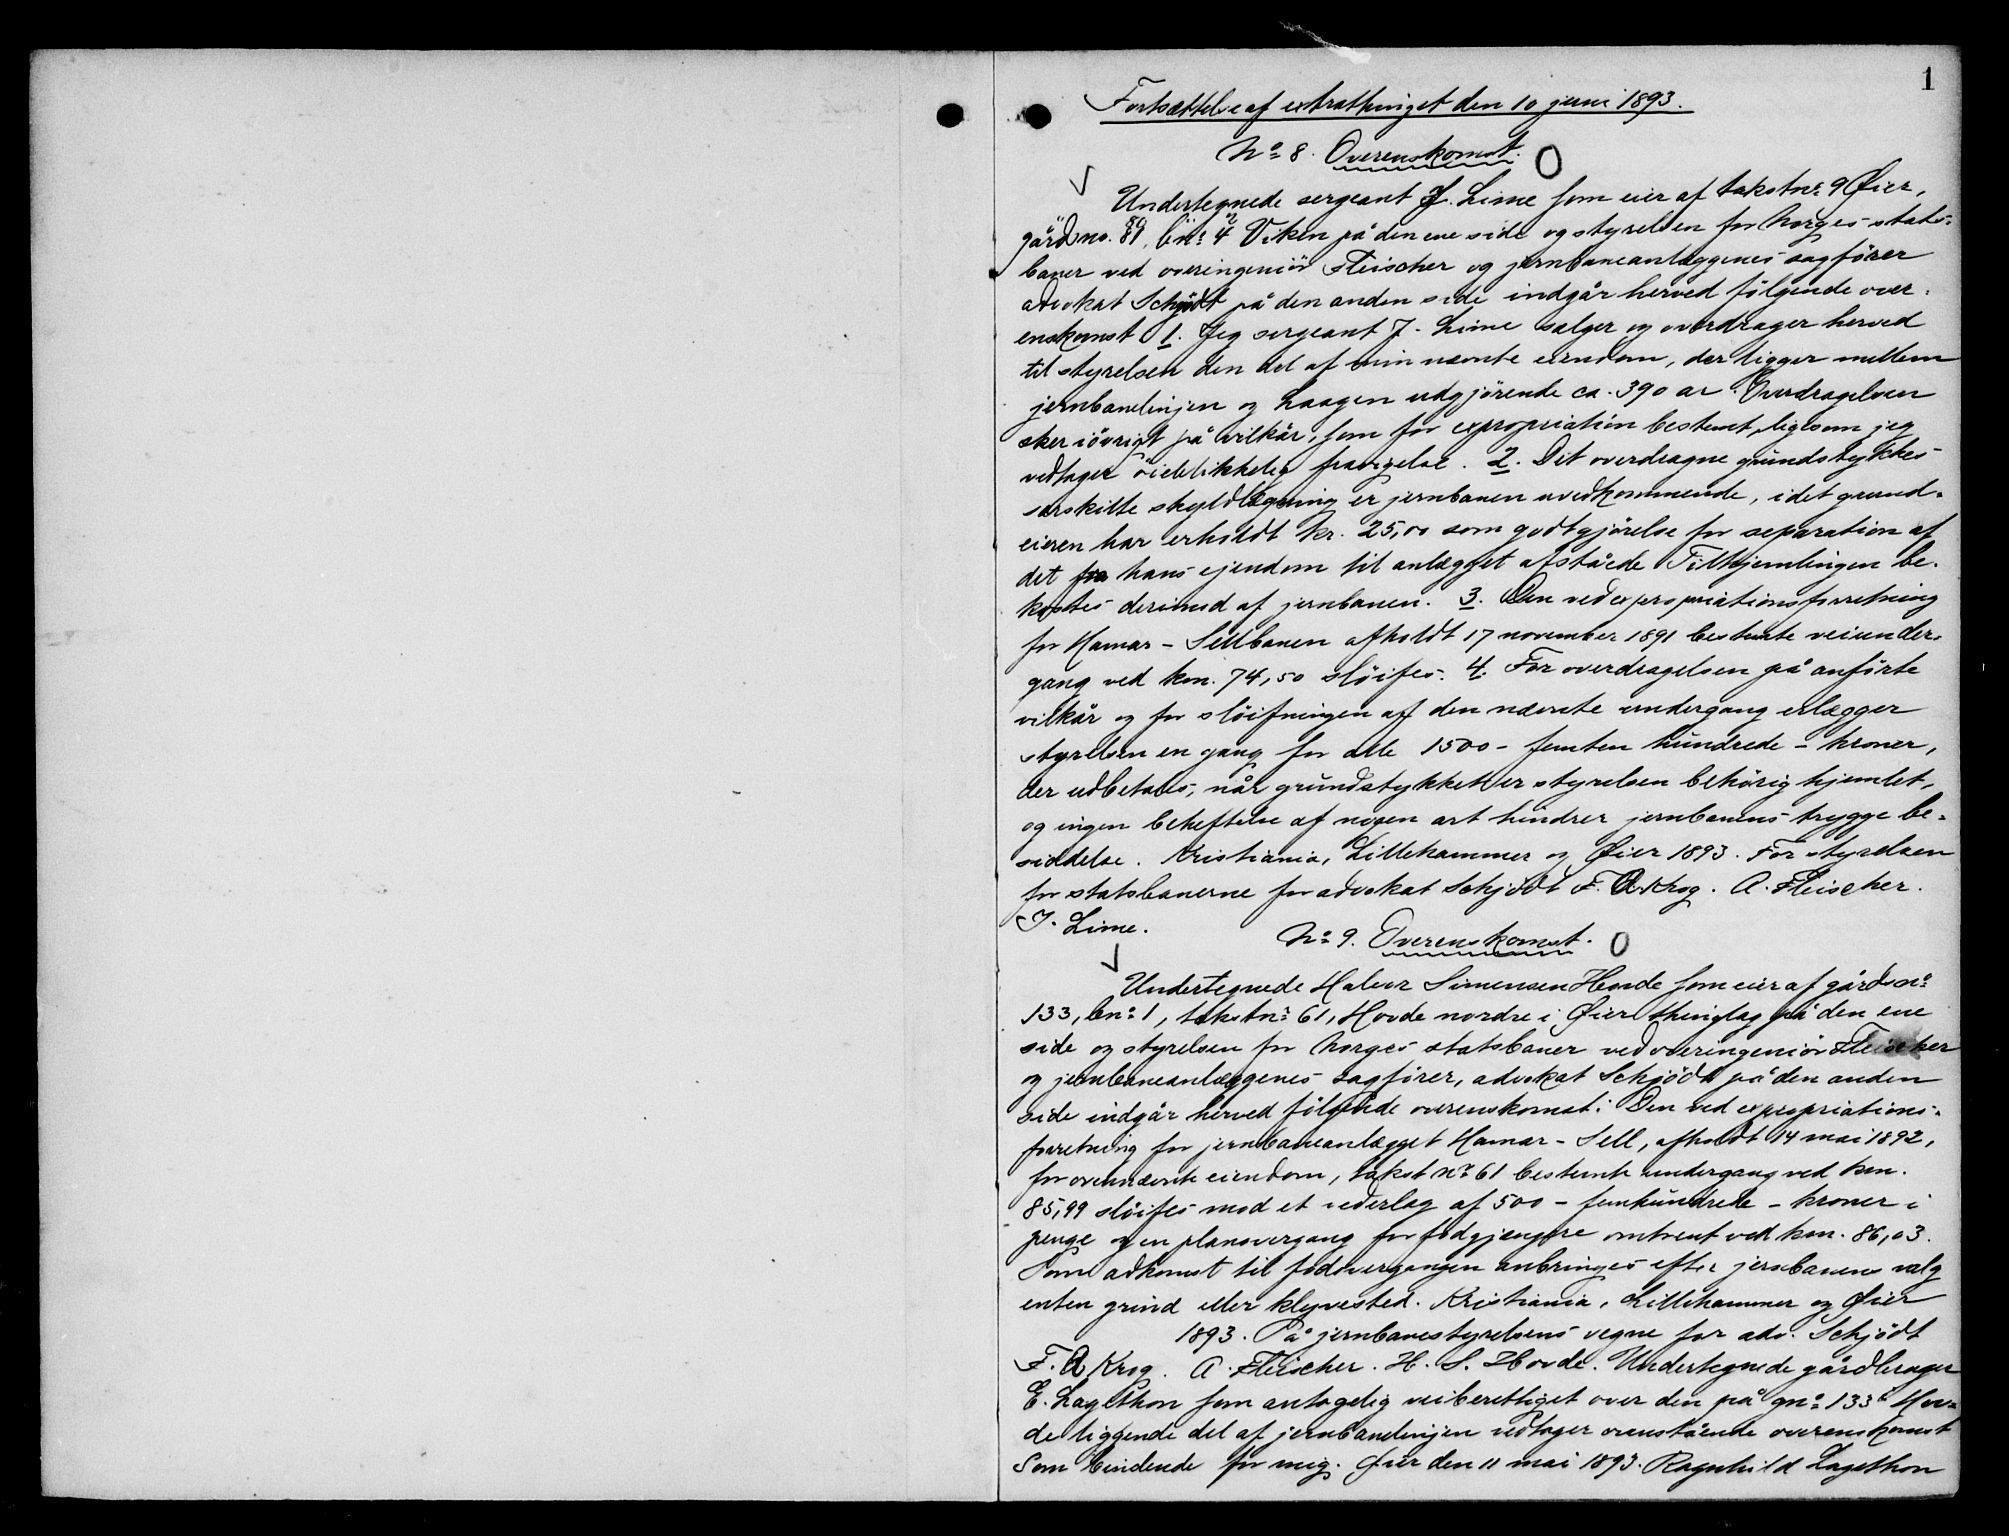 1
Fortsættelse af extrathinget den 10 juni 1893.
No 8. Overenskomst.
Undertegnede sergeant J. Lime som eier af takstnr 9 Øier,
gårdsno. 89, bno 4 Viken på den ene side og styrelsen for Norges stats-
baner ved overingeniör Fleischer og jernbaneanlæggenes sagförer
advokat Schjödt på den anden side indgår herved fölgende over-
enskomst 1. Jeg sergeant J. Lime sælger og overdrager herved
til styrelsen den del af min nævnte eiendom, der ligger mellem
jernbanelinjen og Laagen udgjörende ca. 390 ar. Overdragelsen
sker iövrigt på vilkår, som for expropriation bestemt, ligesom jeg
vedtager öieblikkelig fravigelse. 2. Det overdragne grundstykkes
særskilte skyldlægning er jernbanen uvedkommende, idet grund-
eieren har erholdt kr. 25,00 som godtgjörelse for separation af
det fra hans ejendom til anlægget afståede. Tilhjemlingen be-
kostes derimod af jernbanen. 3. Den ved expropriationsforretning
for Hamar - Selbanen afholdt 17 november 1891 bestemte veiunder-
gang ved km. 74,50 slöifes. 4. For overdragelsen på anförte
vilkår og for slöifningen af den nævnte undergang erlægger
styrelsen en gang for alle 1500 - femten hundrede - kroner,
der udbetales, når grundstykket er styrelsen behörig hjemlet,
og ingen beheftelse af nogen art hindrer jernbanens trygge be-
siddelse. Kristiania, Lillehammer og Øier 1893. For styrelsen
for statsbanerne for advokat Schjödt F. A. Krog. A. Fleischer.
J. Lime.
No 9. Overenskomst.
Undertegnede Halvor Simensen Hovde som eier af gårdsno
133, bno 1, takstno 61, Hovde nordre i Øier thinglag på den ene
side og styrelsen for Norges statsbaner ved overingeniör Fleischer
og jernbaneanlæggenes sagförer, advokat Schjödt på den anden
side indgår herved fölgende overenskomst: Den ved expropriations-
forretning for jernbaneanlægget Hamar - Sell, afholdt 14 mai 1892,
for ovennævnte eiendom, takst no 61 bestemte undergang ved km.
85,99 slöifes mod et vederlag af 500 - femhundrede - kroner i
penge og en planovergang for fodgjengere omtrent ved km. 86,03.
Som adkomst til fodovergangen anbringes efter jernbanens valg
enten grind eller klyvested. Kristiania, Lillehammer og Øier
1893. På jernbanestyrelsens vegne for adv. Schjödt
F. A Krog. A. Fleischer. H. S. Hovde. Undertegnede gårdbruger
E. Lagethon som antagelig veiberettiget over den på gno 133 Hov-
de liggende del af jernbanelinjen vedtager ovenstående overenskomst
som bindende for mig. Øier den 11 mai 1893. Ragnhild Lagethon